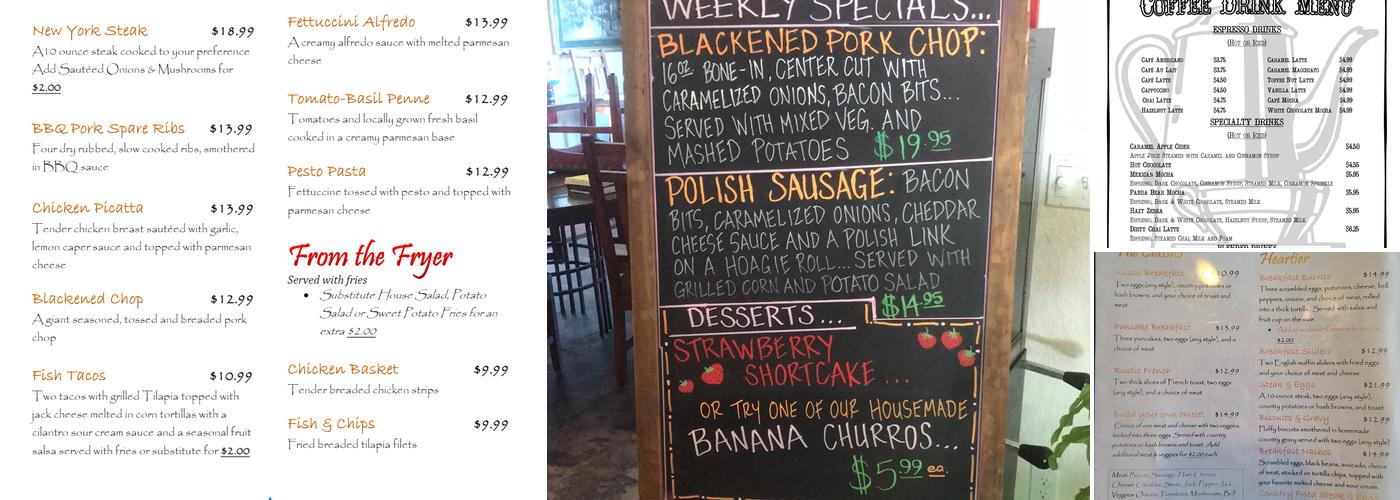 New York Steak $18.99
A 10 ounce steak cooked to your preference
Add Sautéed Onions & Mushrooms for
$2.00
BBQ Pork Spare Ribs $13.99
Four dry rubbed, slow cooked ribs, smothered
in BBQ sauce
Chicken Picatta $13.99
Tender chicken breast sautéed with garlic,
lemon caper sauce and topped with parmesan
cheese
Blackened Chop $12.99
A giant seasoned, tossed and breaded pork
chop
Fish Tacos $10.99
Two tacos with grilled Tilapia topped with
jack cheese melted in corn tortillas with a
cilantro sour cream sauce and a seasonal fruit
salsa served with fries or substitute for $2.00
Fettuccini Alfredo $13.99
A creamy alfredo sauce with melted parmesan
cheese
Tomato-Basil Penne $12.99
Tomatoes and locally grown fresh basil
cooked in a creamy parmesan base
Pesto Pasta $12.99
Fettuccine tossed with pesto and topped with
parmesan cheese
From the Fryer
Served with fries
• Substitute House Salad, Potato
Salad or Sweet Potato Fries for an
extra $2.00
Chicken Basket $9.99
Tender breaded chicken strips
Fish & Chips $9.99
Fried breaded tilapia filets
WEEKLY SPECIALS...
BLACKENED PORK CHOP:
16oz BONE-IN, CENTER CUT WITH
CARAMELIZED ONIONS, BACON BITS...
SERVED WITH MIXED VEG. AND
MASHED POTATOES $19.95
POLISH SAUSAGE: BACON
BITS, CARAMELIZED ONIONS, CHEDDAR
CHEESE SAUCE AND A POLISH LINK
ON A HOAGIE ROLL... SERVED WITH
GRILLED CORN AND POTATO SALAD
$14.95
DESSERTS...
STRAWBERRY
SHORTCAKE ...
OR TRY ONE OF OUR HOUSEMADE
BANANA CHURROS...
$5.99 ea.
COFFEE DRINK MENU
ESPRESSO DRINKS
(HOT OR ICED)
CAFÉ AMERICANO $3.75 CARAMEL LATTE $4.99
CAFÉ AU LAIT $3.75 CARAMEL MACCHIATO $4.99
CAFÉ LATTE $4.50 TOFFEE NUT LATTE $4.99
CAPPUCCINO $4.50 VANILLA LATTE $4.99
CHAI LATTE $4.75 CAFÉ MOCHA $4.99
HAZELNUT LATTE $4.75 WHITE CHOCOLATE MOCHA $4.99
SPECIALTY DRINKS
(HOT OR ICED)
CARAMEL APPLE CIDER $4.50
APPLE JUICE STEAMED WITH CARAMEL AND CINNAMON SYRUP
HOT CHOCOLATE $4.55
MEXICAN MOCHA $5.95
ESPRESSO, DARK CHOCOLATE, CINNAMON SYRUP, STEAMED MILK, CINNAMON SPRINKLE
PANDA BEAR MOCHA $5.95
ESPRESSO, DARK & WHITE CHOCOLATE, STEAMED MILK
HAZY ZEBRA $5.95
ESPRESSO, DARK & WHITE CHOCOLATE, HAZELNUT SYRUP, STEAMED MILK
DIRTY CHAI LATTE $6.25
ESPRESSO, STEAMED CHAI, MILK AND FOAM
BLENDED DRINKS
The Classics
Rustic Breakfast $10.99
Two eggs (any style), country potatoes or
hash browns, and your choice of toast and
meat
Pancake Breakfast $13.99
Three pancakes, two eggs (any style), and a
choice of meat
Rustic French $12.99
Two thick slices of French toast, two eggs
(any style), and a choice of meat
Build your own omelet $14.99
Choice of one meat and cheese with two veggies,
tucked into three eggs. Served with country
potatoes or hash browns and toast. Add
additional meat & veggies for $2.00 each
Meat: Bacon, Sausage, Ham, Chorizo
Cheese: Cheddar, Swiss, Jack, Pepper Jack
Veggies: Onions, Tomatoes, Mushrooms, Bell
Heartier
Breakfast Burrito $14.99
Three scrambled eggs, potatoes, cheese, bell
peppers, onions, and choice of meat, rolled
into a thick tortilla. Served with salsa and
fruit cup on the side.
• Add an additional meat selection for
$2.00
Breakfast Sliders $12.99
Two English muffin sliders with fried eggs
and your choice of meat and cheese
Steak & Eggs $21.99
A 10-ounce steak, two eggs (any style),
country potatoes or hash browns, and toast
Biscuits & Gravy $12.99
Fluffy biscuits smothered in homemade
country gravy served with two eggs (any style)
Breakfast Nachos $14.99
Scrambled eggs, black beans, avocado, choice
of meat, stacked on tortilla chips, topped with
your favorite melted cheese and sour cream.
Country Fried Steak & Eggs